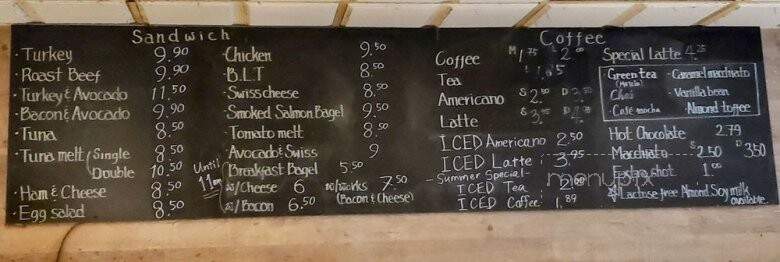 Sandwich
· Turkey 9.90
· Roast Beef 9.90
· Turkey & Avocado 11.50
· Bacon & Avocado 9.90
· Tuna 8.50
· Tuna melt (Single 8.50
Double 10.50
· Ham & Cheese 8.50
· Egg salad 8.50
· Chicken 9.50
· B.L.T 8.50
· Swiss cheese 8.50
· Smoked Salmon Bagel 9.50
· Tomato melt 8.50
· Avocado & Swiss 9
Until 11am
Breakfast Bagel 5.50
w/Cheese 6
w/works 7.50
(Bacon & Cheese)
w/Bacon 6.50
Coffee
Coffee M 1.75 L 2.00
Tea 1.65
Americano S 2.50 D
Latte S D
ICED Americano 2.50
ICED Latte 3.95
- Summer Special -
ICED Tea 2.00
ICED Coffee 1.89
Special Latte 4.25
· Green tea · Caramel macchiato
(Matcha)
Chai · Vanilla bean
· Café mocha · Almond toffee
Hot Chocolate 2.79
Macchiato S 2.50 D 3.50
Extra shot 1.00
Lactose free Almond Soy milk
available
menupix